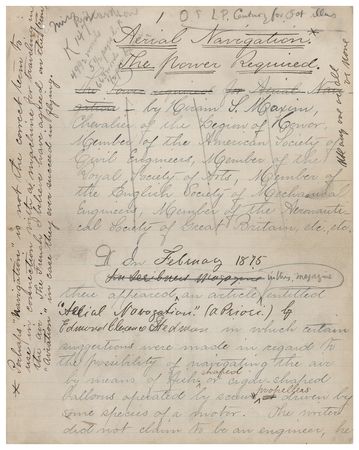 1 O F L.P. Century for Oct
Aerial Navigation.*
The Power Required.
by Aerial Navi
gation - by Hiram S. Maxim,
Chevalier of the Legion of Honor,
Member of the American Society of
Civil Engineers, Member of the
Royal Society of Arts, Member of
the English Society of Mechanical
Engineers, Member of the Aeronauti-
cal Society of Great Britain, etc., etc.
In February 1875
in this magazine
there appeared an article entitled
"Aerial Navigation" (a Priori) by
Edmund Clarence Stedman in which certain
suggestions were made in regard to
the possibility of navigating the air
by means of fish shaped or cigar-shaped
balloons operated by screw propellers driven by
some species of a motor. The writer
did not claim to be an engineer, he
* Perhaps "navigation" is not the correct term to
use in connection with a machine for traveling in
the air. The French I believe have decided on the term
"aviation" in case they ever succeed in flying.